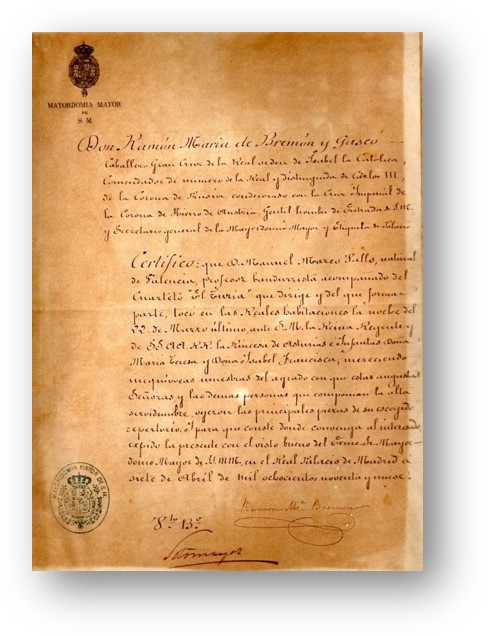 MAYORDOMIA MAYOR
DE
S.M.
Don Ramón Maria de Bremón y Gascó
Caballero Gran Cruz de la Real orden de Isabel la Catolica,
Comendador de número de la Real y distinguida de Cárlos III
de la Corona de Prusia, condecorado con la Cruz Imperial de
la Corona de Hierro de Austria, Gentil hombre de Entrada de S.M.
y Secretario general de la Mayordomía Mayor y Etiqueta de Palacio
Certifico: que D. Manuel Marco Valls, natural
de Valencia, profesor bandurrista acompañado del
Cuarteto "El Turia" que dirige y del que forma
parte, tocó en las Reales habitaciones la noche del
22 de Marzo último ante S.M. la Reina Regente y
de SS.AA.RR. la Princesa de Asturias é Infantas Doña
Maria Teresa y Doña Isabel Francisca, mereciendo
inequívocas muestras del agrado con que estas augustas
Señoras y las demas personas que componian la alta
servidumbre, oyeron las principales piezas de su escogido
repertorio. Y para que conste donde convenga al interesado
expido la presente con el visto bueno del Excmo. Sr. Mayor-
domo Mayor de SS.MM. en el Real Palacio de Madrid á
siete de Abril de mil ochocientos noventa y nueve.
Ramon Mª Bremon
Vto Bno
Sotomayor
MAYORDOMIA MAYOR DE S.M.